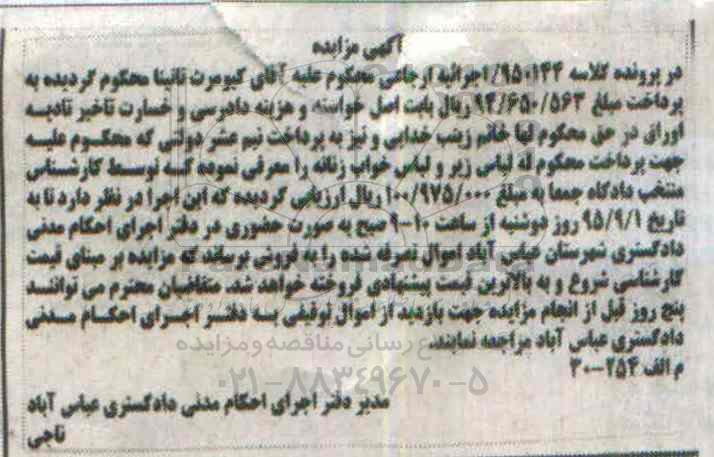 آگهی مزایده
در پرونده کلاسه ۹۵۰۱۴۴/اجرائیه ارجاعی محکوم علیه آقای کیومرث تائینا محکوم گردیده به
پرداخت مبلغ ۹۴/۶۵۰/۵۶۳ ریال بابت اصل خواسته و هزینه دادرسی و خسارت تاخیر تادیه
اوراق در حق محکوم لها خانم زینب خدایی و نیز به پرداخت نیم عشر دولتی که محکوم علیه
جهت پرداخت محکوم له لباس زیر و لباس خواب زنانه را معرفی نموده که توسط کارشناس
منتخب دادگاه جمعا به مبلغ ۱۰۰/۹۷۵/۰۰۰ ریال ارزیابی گردیده که این اجرا در نظر دارد تا به
تاریخ ۹۵/۹/۱ روز دوشنبه از ساعت ۱۰-۹ صبح به صورت حضوری در دفتر اجرای احکام مدنی
دادگستری شهرستان عباس آباد اموال تعرفه شده را به فروش برساند که مزایده بر مبنای قیمت
کارشناسی شروع و به بالاترین قیمت پیشنهادی فروخته خواهد شد. متقاضیان محترم می توانند
پنج روز قبل از انجام مزایده جهت بازدید از اموال توقیفی به دفتر اجرای احکام مدنی
دادگستری عباس آباد مراجعه نمایند.
م الف ۲۵۴-۳۰
رسانی مناقصه و مزایده
۰۲۱-۸۸۳۴۹۶۷۰-۵
مدیر دفتر اجرای احکام مدنی دادگستری عباس آباد
تاجی